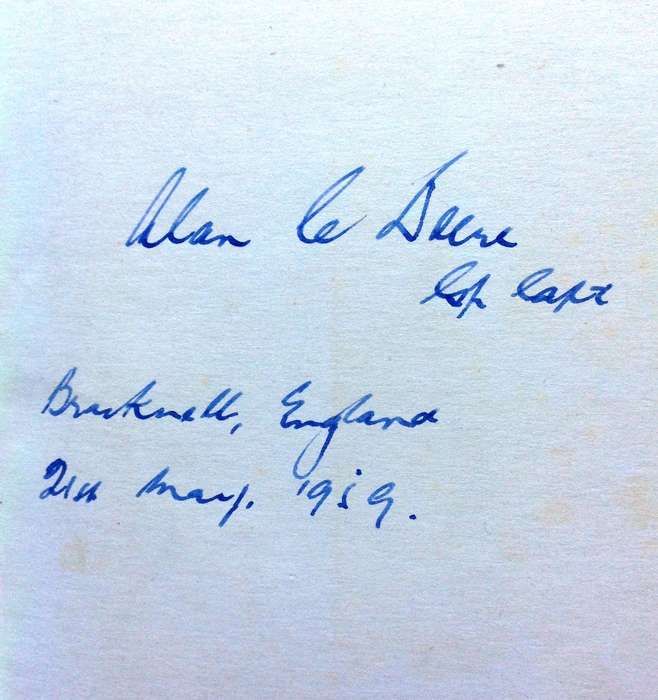 Alan C Deere
Gp Capt
Bracknell, England
21st May. 1959.